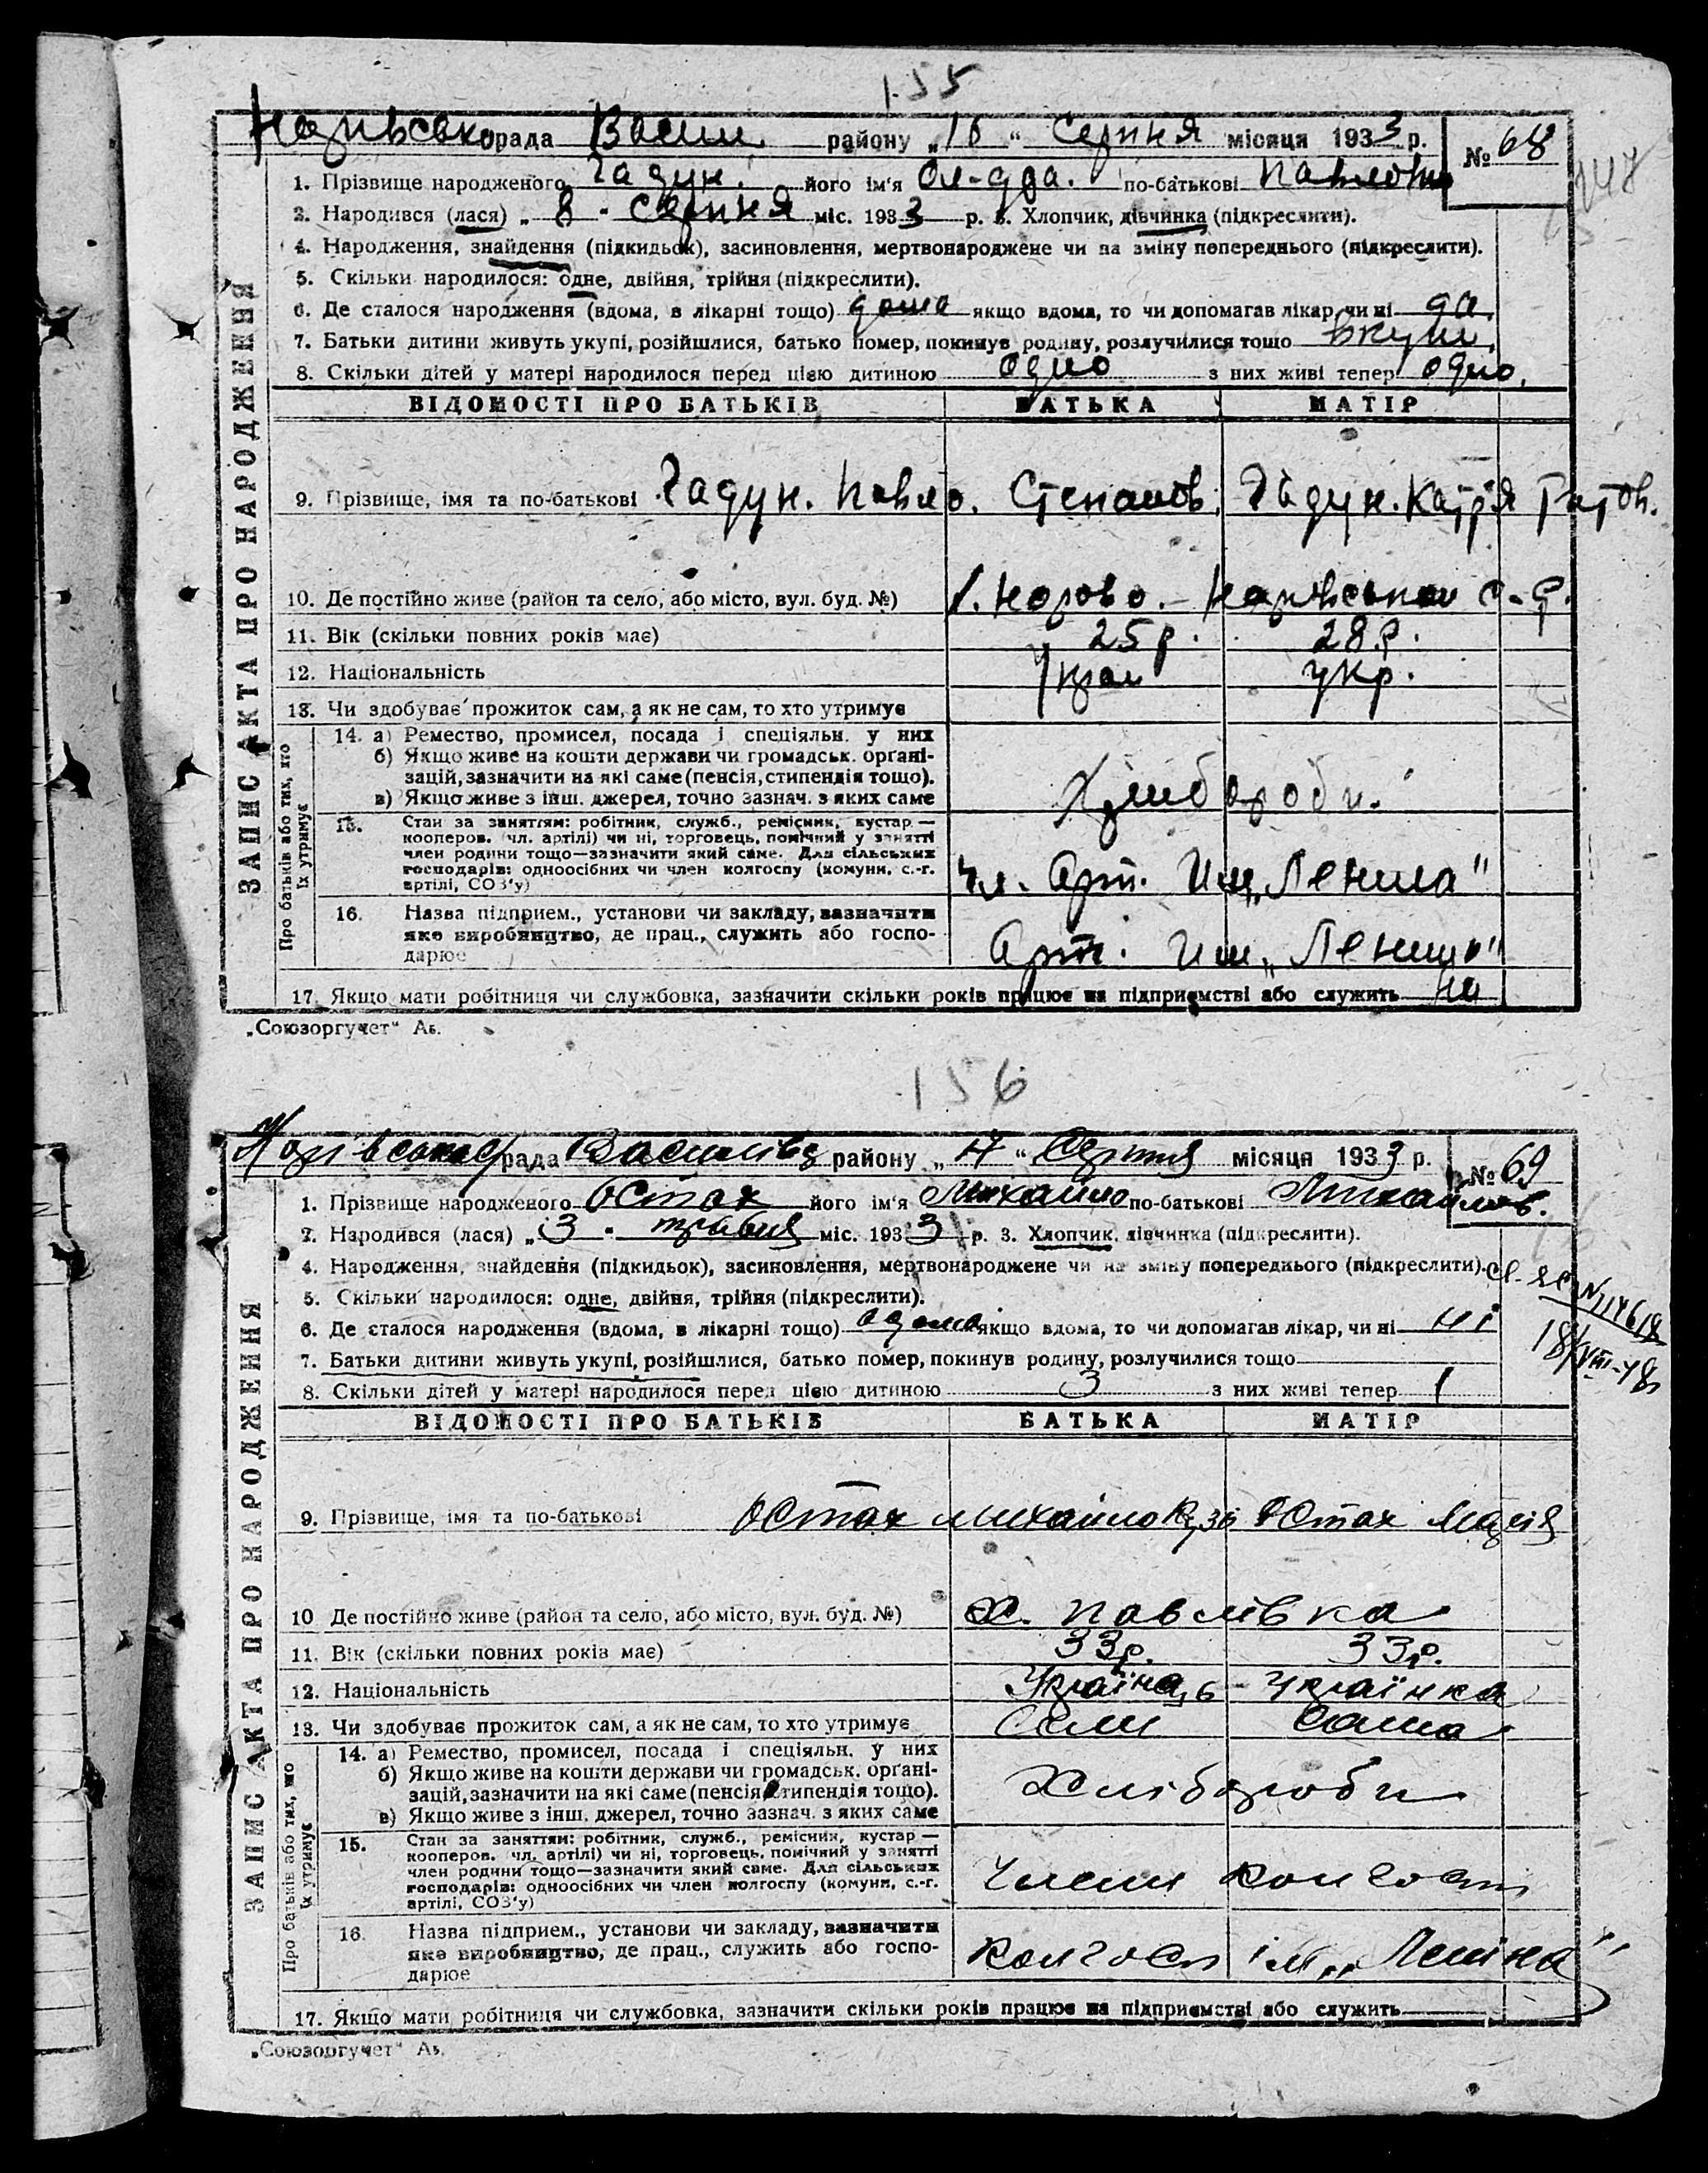 155
рада Васил. району „16“ Серпня місяця 1933 р. № 68
1. Прізвище народженого Гадун. його ім'я Ол-дра. по-батькові Павловна
2. Народився (лася) „ 8 - Серпня міс. 1933 р. 3. Хлопчик, дівчинка (підкреслити).
4. Народження, знайдення (підкидьок), засиновлення, мертвонароджене чи на зміну попереднього (підкреслити).
5. Скільки народилося: одне, двійня, трійня (підкреслити).
6. Де сталося народження (вдома, в лікарні тощо) дома якщо вдома, то чи допомагав лікар, чи ні да.
7. Батьки дитини живуть укупі, розійшлися, батько помер, покинув родину, розлучилися тощо вкупі.
8. Скільки дітей у матері народилося перед цією дитиною одно з них живі тепер одно.
ВІДОМОСТІ ПРО БАТЬКІВ БАТЬКА МАТІР
9. Прізвище, імя та по-батькові Гадун. Павло. Степанов. Гадун. Катря
10. Де постійно живе (район та село, або місто, вул. буд. №)
11. Вік (скільки повних років має) 25 р. 28 р.
12. Національність Украї укр.
13. Чи здобуває прожиток сам, а як не сам, то хто утримує
ЗАПИС АКТА ПРО НАРОДЖЕННЯ
Про батьків або тих, хто їх утримує
14. а) Ремество, промисел, посада і спеціяльн. у них
б) Якщо живе на кошти держави чи громадськ. органі-
зацій, зазначити на які саме (пенсія, стипендія тощо).
в) Якщо живе з інш. джерел, точно зазнач. з яких саме
Хлібороби.
15. Стан за заняттям: робітник, служб., ремісник, кустар —
кооперов. чл. артілі) чи ні, торговець, помічний у занятті
член родини тощо—зазначити який саме. Для сільських
господарів: одноосібних чи член колгоспу (комуни, с.-г.
артілі, СОЗ'у)
Чл. Арт. Им „Ленина"
16. Назва підприєм., установи чи закладу, зазначити
яке виробництво, де прац., служить або госпо-
дарює
Арт. Им „Ленина"
17. Якщо мати робітниця чи службовка, зазначити скільки років працює на підприємстві або служить
„Союзоргучет" Аб.
156
рада Василівка району „17“ Серпня місяця 1933 р. № 69
1. Прізвище народженого Остах його ім'я Михайло по-батькові Михайлов.
2. Народився (лася) „3 - травня міс. 1933 р. 3. Хлопчик, дівчинка (підкреслити).
4. Народження, знайдення (підкидьок), засиновлення, мертвонароджене чи на зміну попереднього (підкреслити).
18/VIII-48
5. Скільки народилося: одне, двійня, трійня (підкреслити).
6. Де сталося народження (вдома, в лікарні тощо) вдома якщо вдома, то чи допомагав лікар, чи ні ні
7. Батьки дитини живуть укупі, розійшлися, батько помер, покинув родину, розлучилися тощо
8. Скільки дітей у матері народилося перед цією дитиною 3 з них живі тепер 1
ВІДОМОСТІ ПРО БАТЬКІВ БАТЬКА МАТІР
9. Прізвище, імя та по-батькові Остах Михайло Кузі Остах Марія
10 Де постійно живе (район та село, або місто, вул. буд. №) Х. Павлівка
11. Вік (скільки повних років має) 33 р. 33 р.
12. Національність Українць - Українка
13. Чи здобуває прожиток сам, а як не сам, то хто утримує Сам Сама
ЗАПИС АКТА ПРО НАРОДЖЕННЯ
Про батьків або тих, що їх утримує
14. а) Ремество, промисел, посада і спеціяльн. у них
б) Якщо живе на кошти держави чи громадськ. органі-
зацій, зазначити на які саме (пенсія, стипендія тощо).
в) Якщо живе з інш. джерел, точно зазнач. з яких саме
Хлібороби
15. Стан за заняттям: робітник, служб., ремісник, кустар —
кооперов. чл. артілі) чи ні, торговець, помічний у занятті
член родини тощо—зазначити який саме. Для сільських
господарів: одноосібних чи член колгоспу (комуни, с.-г.
артілі, СОЗ'у)
Члени колгосп
16. Назва підприєм., установи чи закладу, зазначити
яке виробництво, де прац., служить або госпо-
дарює
Колгосп ім „Леніна"
17. Якщо мати робітниця чи службовка, зазначити скільки років працює на підприємстві або служить
„Союзоргучет" Аб.